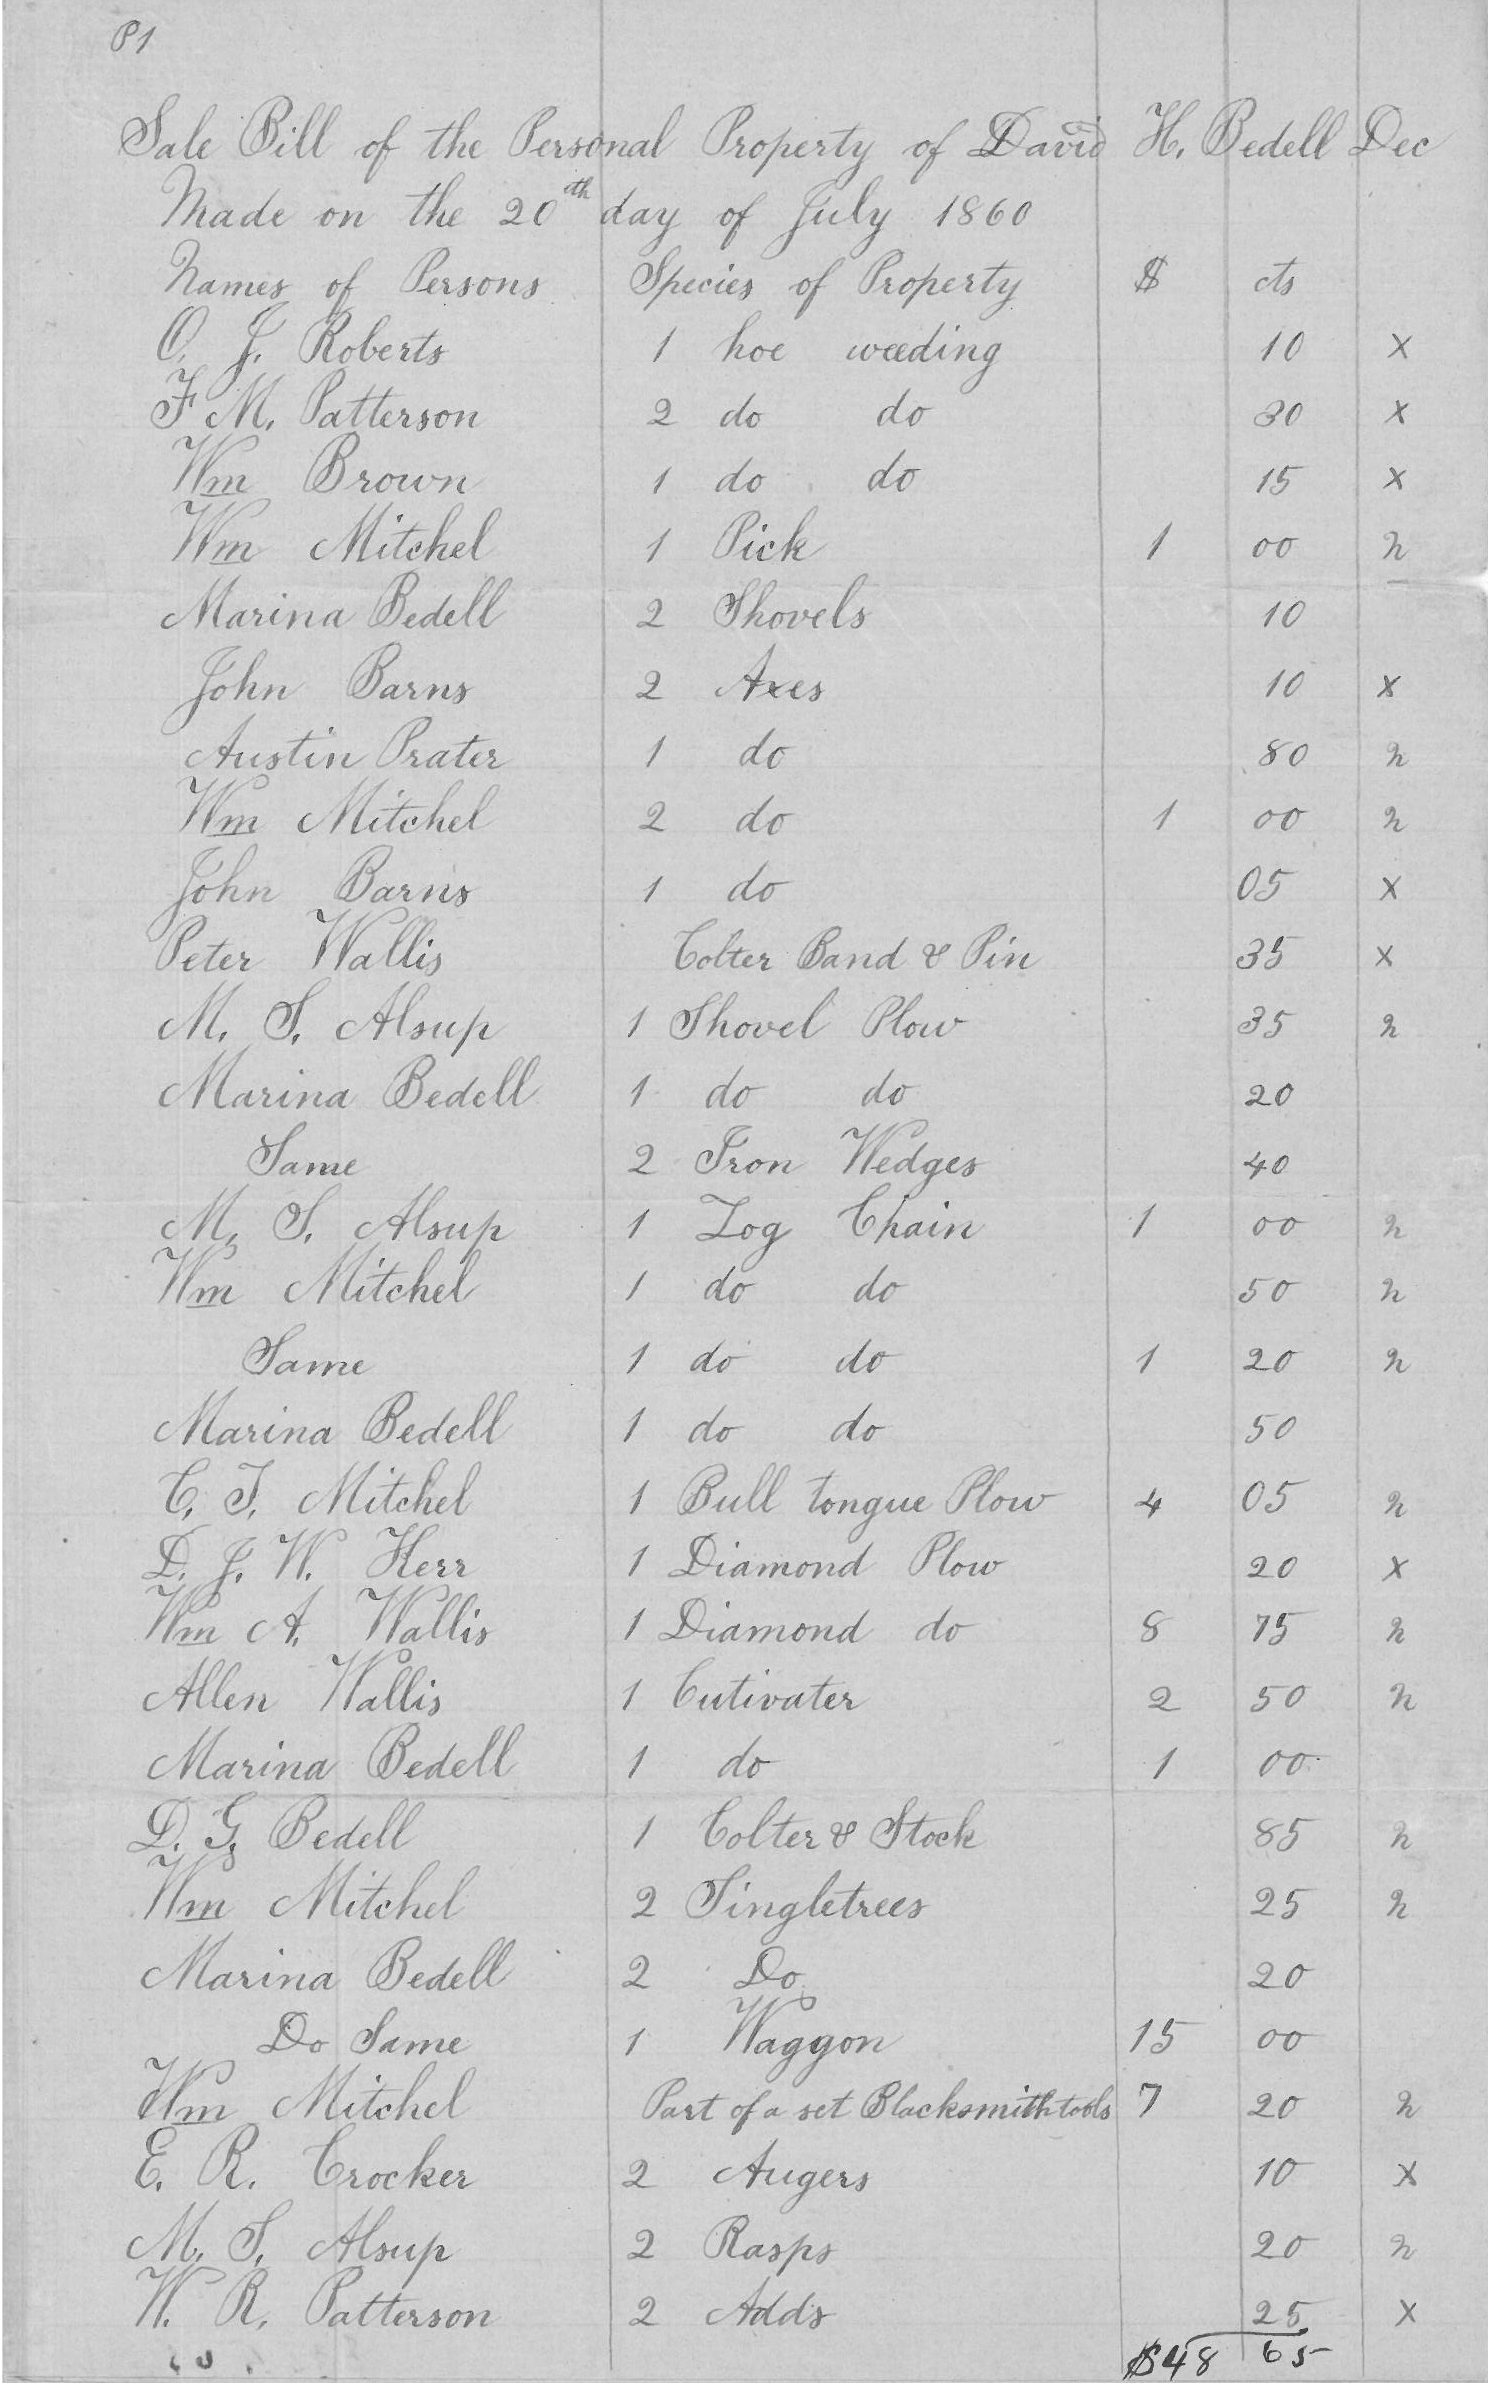 P1
Sale Bill of the Personal Property of David H. Bedell Dec
Made on the 20th day of July 1860
Names of Persons Species of Property $ cts
O. J. Roberts 1 hoe weeding 10 x
F M. Patterson 2 do do 30 x
Wm Brown 1 do do 15 x
Wm Mitchel 1 Pick 1 00 n
Marina Bedell 2 Shovels 10
John Barns 2 Axes 10 x
Austin Prater 1 do 80 n
Wm Mitchel 2 do 1 00 n
John Barns 1 do 05 x
Peter Wallis Colter Band & Pin 35 x
M. S. Alsup 1 Shovel Plow 35 n
Marina Bedell 1 do do 20
Same 2 Iron Wedges 40
M. S. Alsup 1 Log Chain 1 00 n
Wm Mitchel 1 do do 50 n
Same 1 do do 1 20 n
Marina Bedell 1 do do 50
C. T. Mitchel 1 Bull tongue Plow 4 05 n
D. J. W. Kerr 1 Diamond Plow 20 x
Wm A. Wallis 1 Diamond do 8 75 n
Allen Wallis 1 Cutivater 2 50 n
Marina Bedell 1 do 1 00
D. G. Bedell 1 Colter & Stock 85 n
Wm Mitchel 2 Singletrees 25 n
Marina Bedell 2 Do 20
Do Same 1 Waggon 15 00
Wm Mitchel Part of a set Blacksmith tools 7 20 n
E. R. Crocker 2 Augers 10 x
M. S. Alsup 2 Rasps 20 n
W. R. Patterson 2 Adds 25 x
$48 65